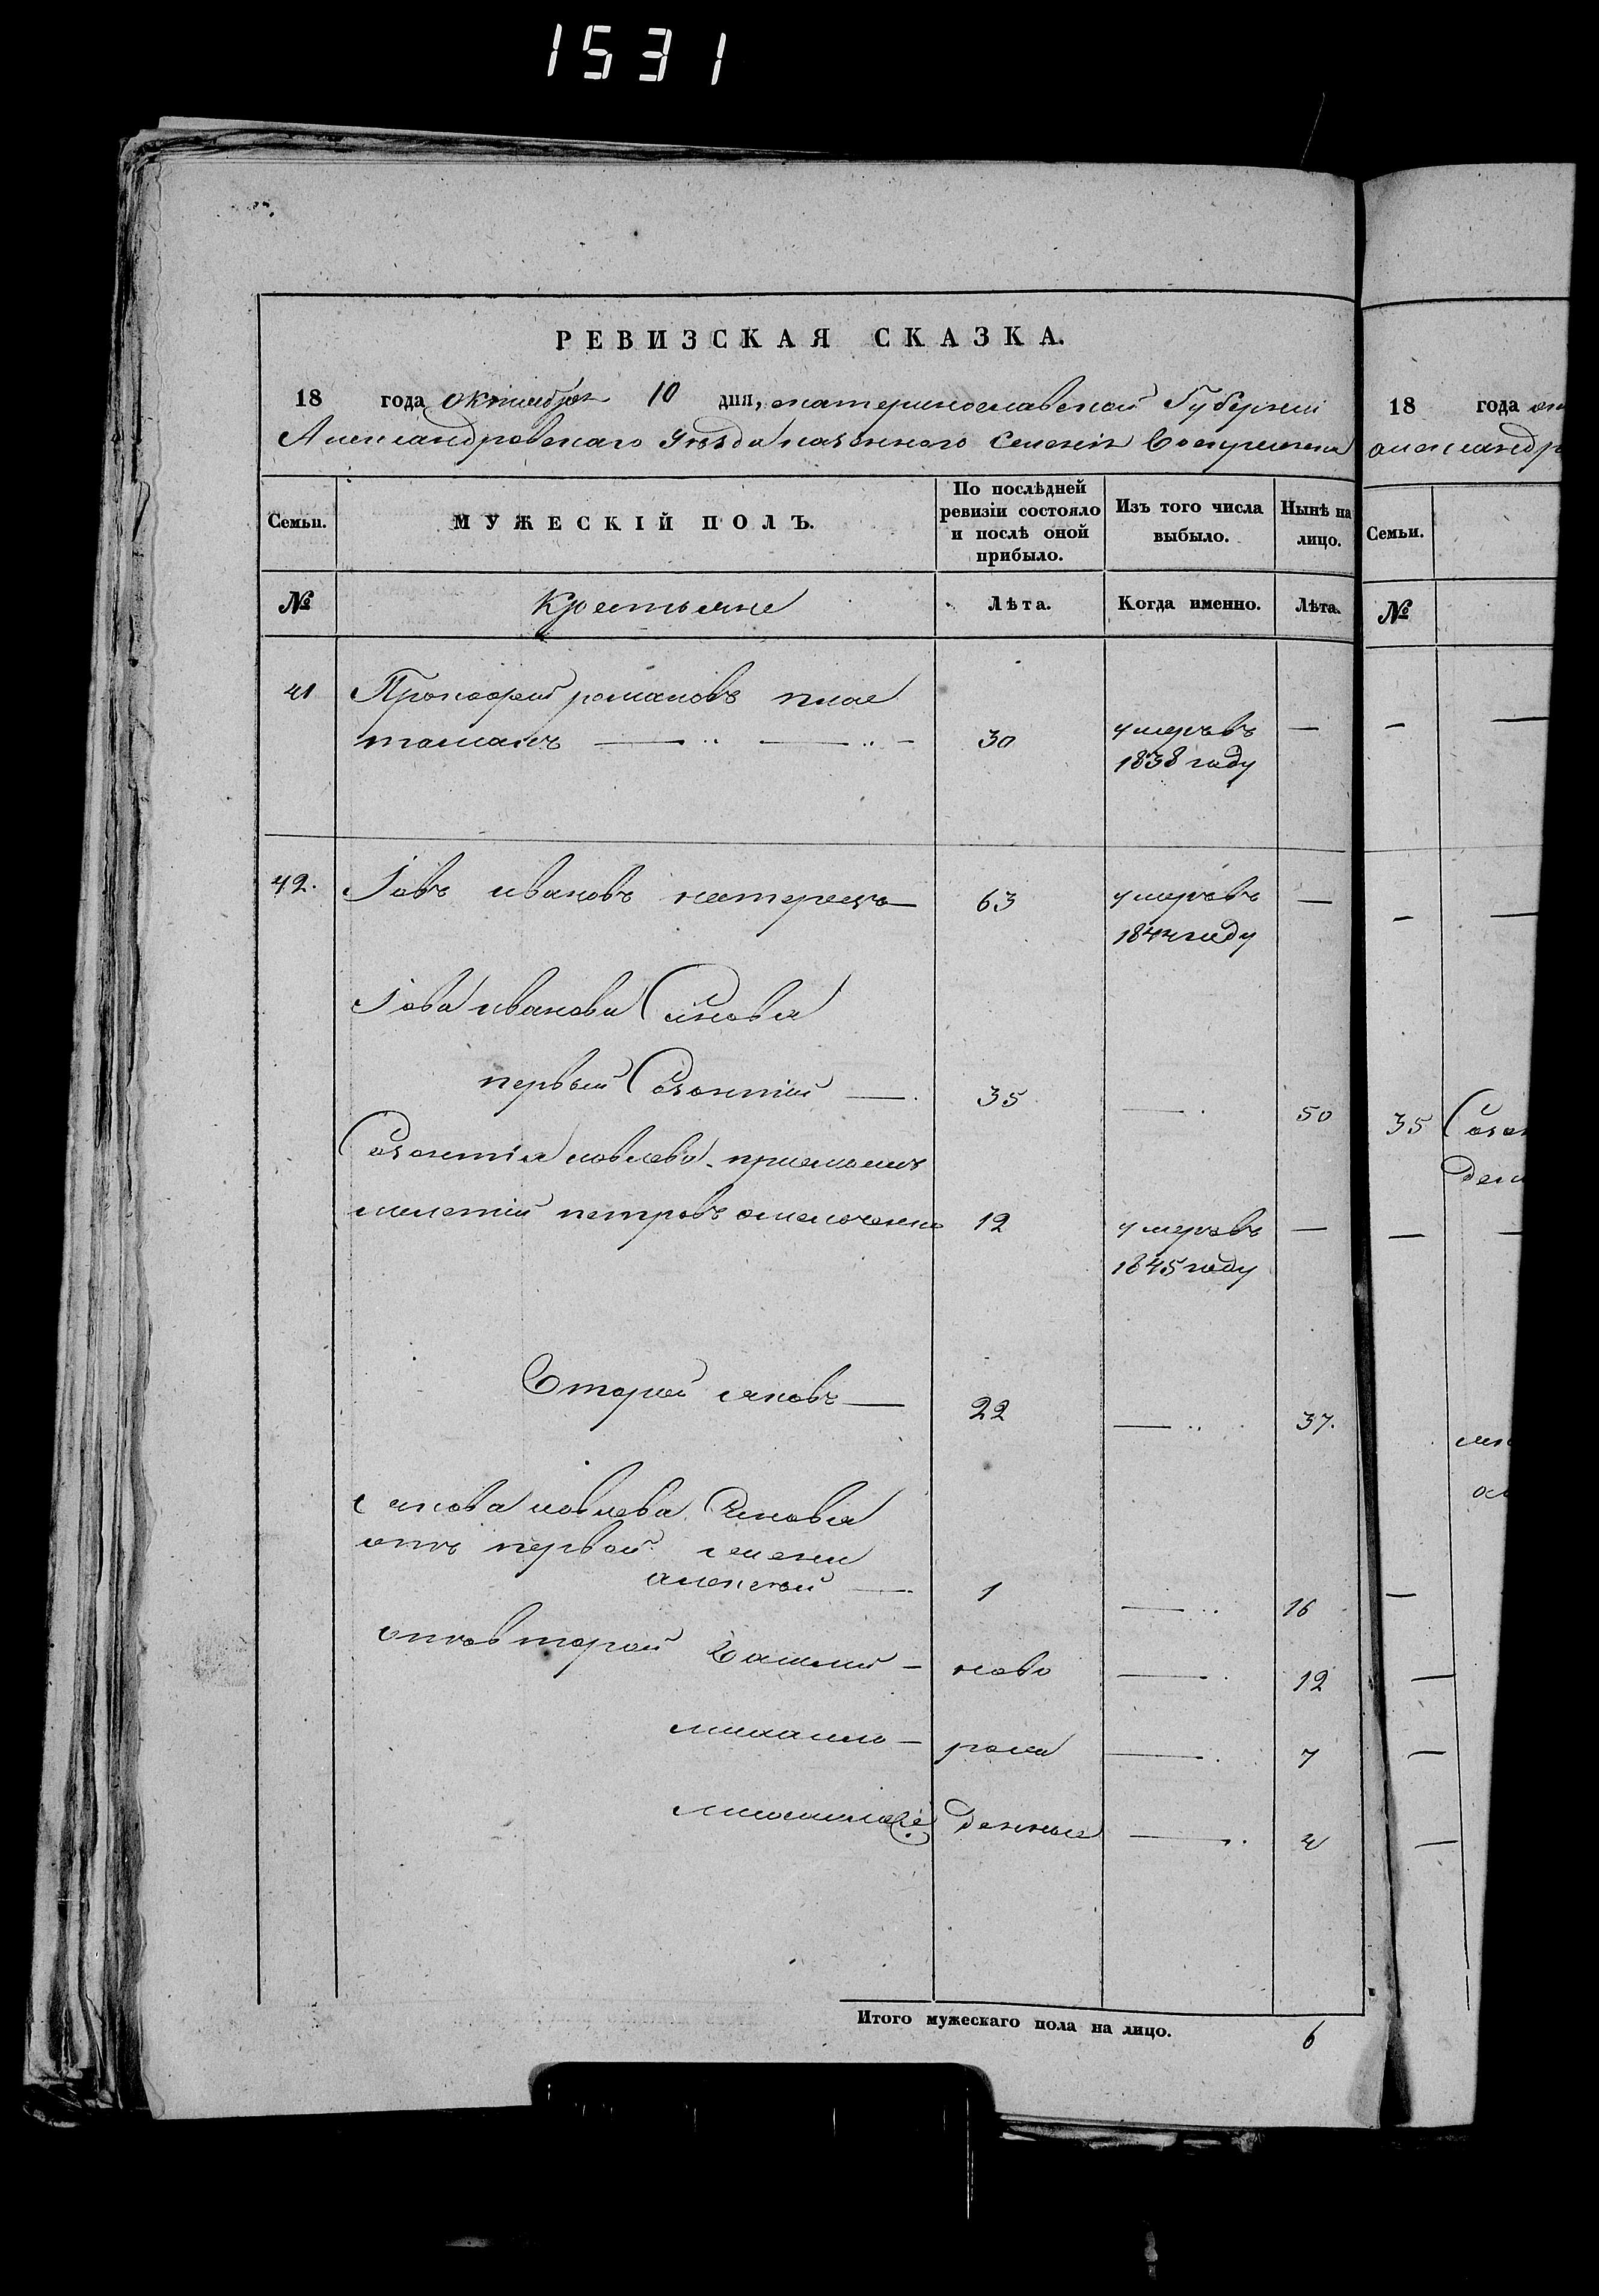 1531
РЕВИЗСКАЯ СКАЗКА.
18 года октября 10 дня, екатеринославской Губернии
Александровскаго Уезда казенного Селения
Семьи.
МУЖЕСКІЙ ПОЛЪ.
По послѣдней ревизіи состояло и послѣ оной прибыло.
Изъ того числа выбыло.
Нынѣ на лицо.
№
Крестьяне
Лѣта.
Когда именно.
Лѣта.
41 Прокофей романовъ
30 умеръ въ —
1838 году
42. Iовъ ивановъ 63 умеръ въ —
1844 году
Iова иванова Сыновья
первый Созонтий — 35 — 50
Созонтия иовлева приемышъ
мелетий петровъ омельченко 12 умеръ въ —
1845 году
Второй яковъ — 22 — 37.
якова иовлева Сыновья
отъ первой жены
алексей — 1 — 16
отъ второй Василий — ново — 12
михаило — рож — 7
михаило 2й денные — 4
Итого мужескаго пола на лицо. 6
18 года
александр
Семьи.
№
— —
— —
35 Созон
— —
—
—
—
—